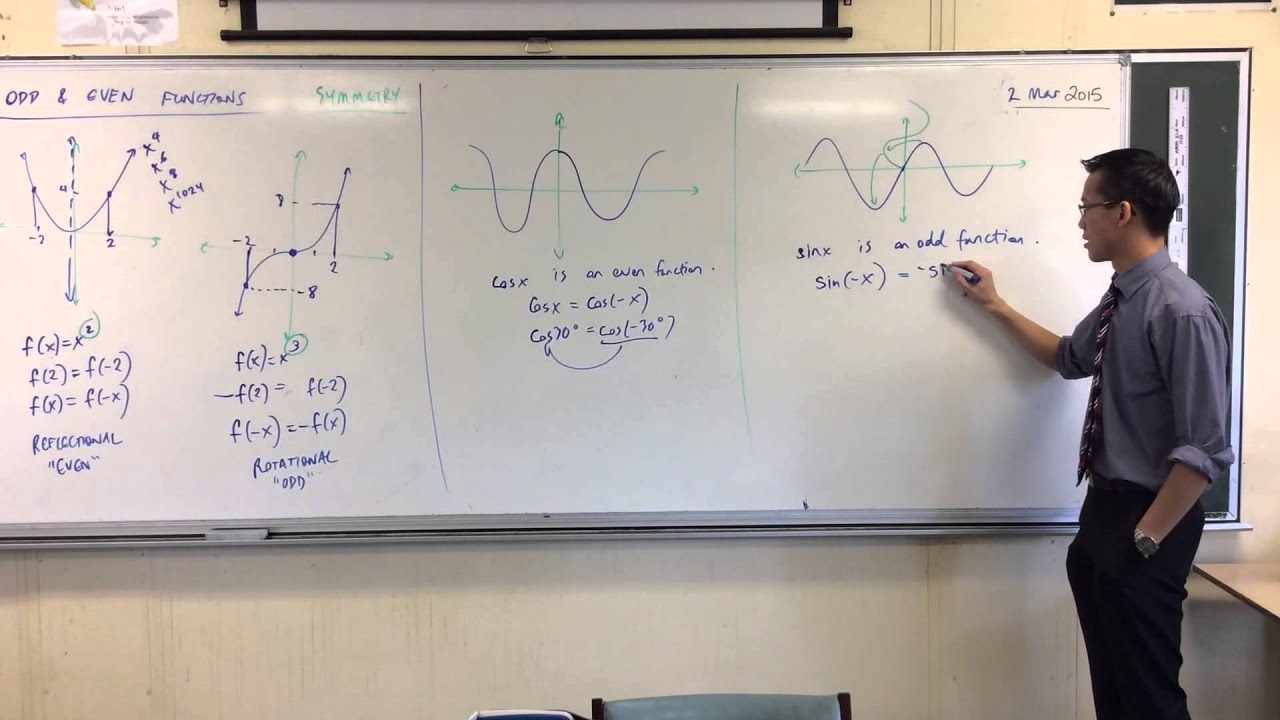 ODD & EVEN FUNCTIONS
SYMMETRY
x⁴
x⁶
x⁸
x¹⁰²⁴
4
-2
2
f(x)=x²
f(2)=f(-2)
f(x)=f(-x)
REFLECTIONAL
"EVEN"
8
-2
2
-8
f(x)=x³
-f(2)= f(-2)
f(-x)=-f(x)
ROTATIONAL
"ODD"
cosx is an even function.
cosx = cos(-x)
cos30° = cos(-30°)
2 Mar 2015
sinx is an odd function.
sin(-x) = -si